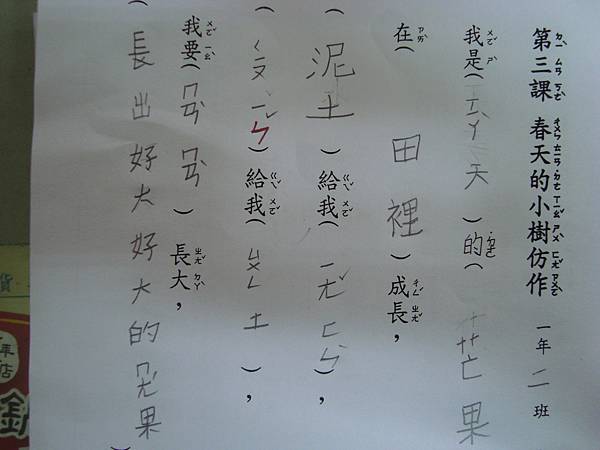 第三課 春天的小樹仿作 一年二班
我是(ㄒㄧㄚˋ天)的(芒果
在(田裡)成長，
(泥土)給我(ㄧㄤˇㄈㄣˋ)，
(ㄑㄡㄧㄣˇ)給我(ㄙㄨㄥ土)，
我要(ㄇㄢˋㄇㄢˋ)長大，
(長出好大好大的ㄇㄤˊ果)